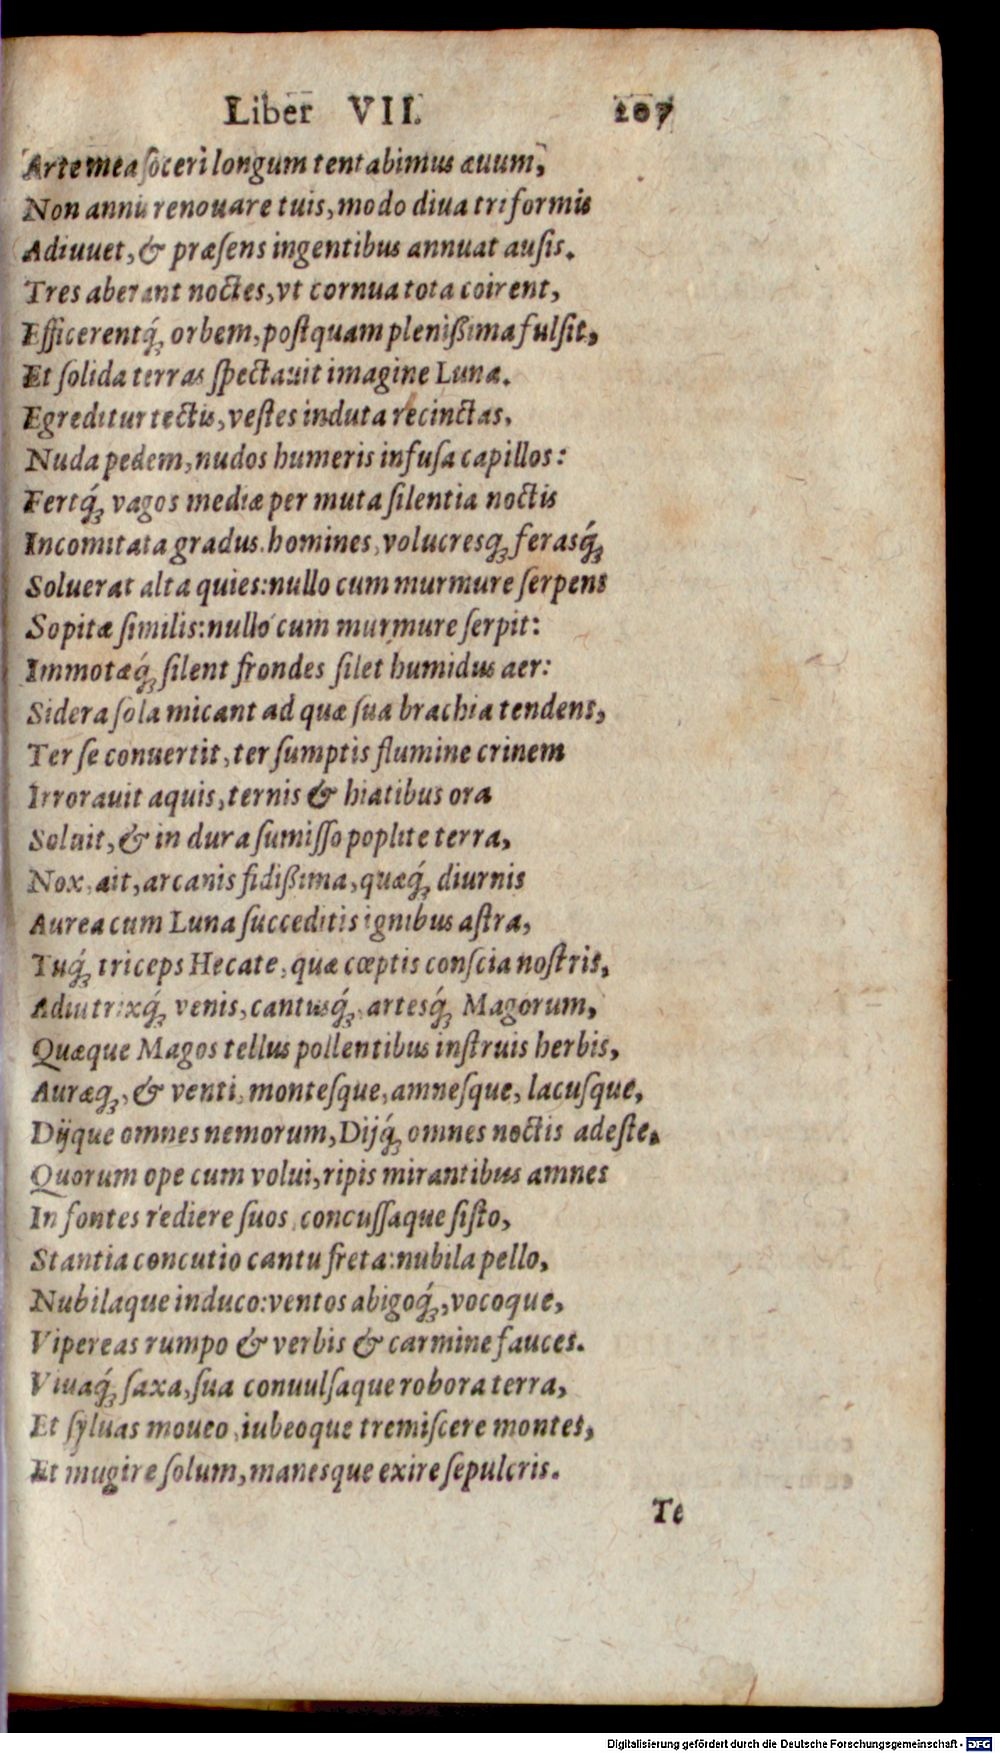 Liber VII. 207
Arte mea ſoceri longum tentabimus æuum,
Non annis renouare tuis, modo diua triformis
Adiuuet, & præſens ingentibus annuat auſis.
Tres aberant noctes, vt cornua tota coirent,
Efficerentq́; orbem, poſtquam pleniſſima fulſit,
Et ſolida terras ſpectauit imagine Luna.
Egreditur tectis, veſtes induta recinctas.
Nuda pedem, nudos humeris infuſa capillos:
Fertq́; vagos mediæ per muta ſilentia noctis
Incomitata gradus. homines, volucresq; ferasq́;
Soluerat alta quies: nullo cum murmure ſerpens
Sopitæ ſimilis: nullo cum murmure ſerpit:
Immotæq́; ſilent frondes ſilet humidus aer:
Sidera ſola micant ad quæ ſua brachia tendens,
Ter ſe conuertit, ter ſumptis flumine crinem
Irrorauit aquis, ternis & hiatibus ora
Soluit, & in dura ſumiſſo poplite terra,
Nox, ait, arcanis fidiſſima, quæq́; diurnis
Aurea cum Luna ſucceditis ignibus aſtra,
Tuq́; triceps Hecate, quæ cœptis conſcia noſtris,
Adiutrixq́; venis, cantusq́;, artesq́; Magorum,
Quæque Magos tellus pollentibus inſtruis herbis,
Auræq;, & venti, monteſque, amneſque, lacuſque,
Dijque omnes nemorum, Dijq́; omnes noctis adeſte.
Quorum ope cum volui, ripis mirantibus amnes
In fontes rediere ſuos, concuſſaque ſiſto,
Stantia concutio cantu freta: nubila pello,
Nubilaque induco: ventos abigoq́;, vocoque,
Vipereas rumpo & verbis & carmine fauces.
Viuaq́; ſaxa, ſua conuulſaque robora terra,
Et ſyluas moueo, iubeoque tremiſcere montes,
Et mugire ſolum, manesque exire ſepulcris.
Te
Digitalisierung gefördert durch die Deutsche Forschungsgemeinschaft - DFG